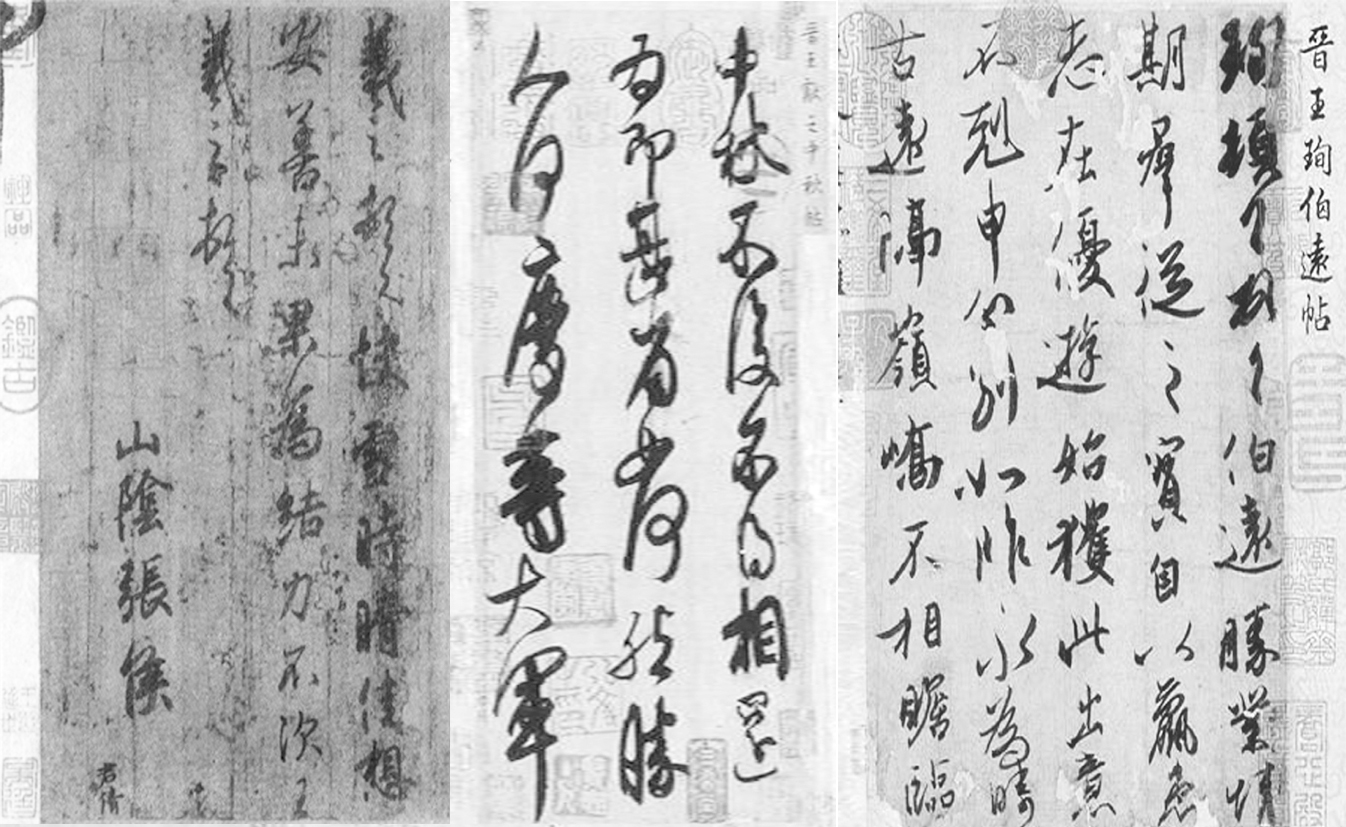 晉王珣伯遠帖
珣頓首頓首伯遠勝業情
期群從之寶自以羸患
志在優遊始獲此出意
不剋申分別如昨永為疇
古遠隔嶺嶠不相瞻臨
晉王獻之中秋帖
中秋不復不得相還
為即甚省如何然勝
人何慶等大軍
羲之頓首快雪時晴佳想
安善未果為結力不次王
羲之頓首
山陰張侯
君倩